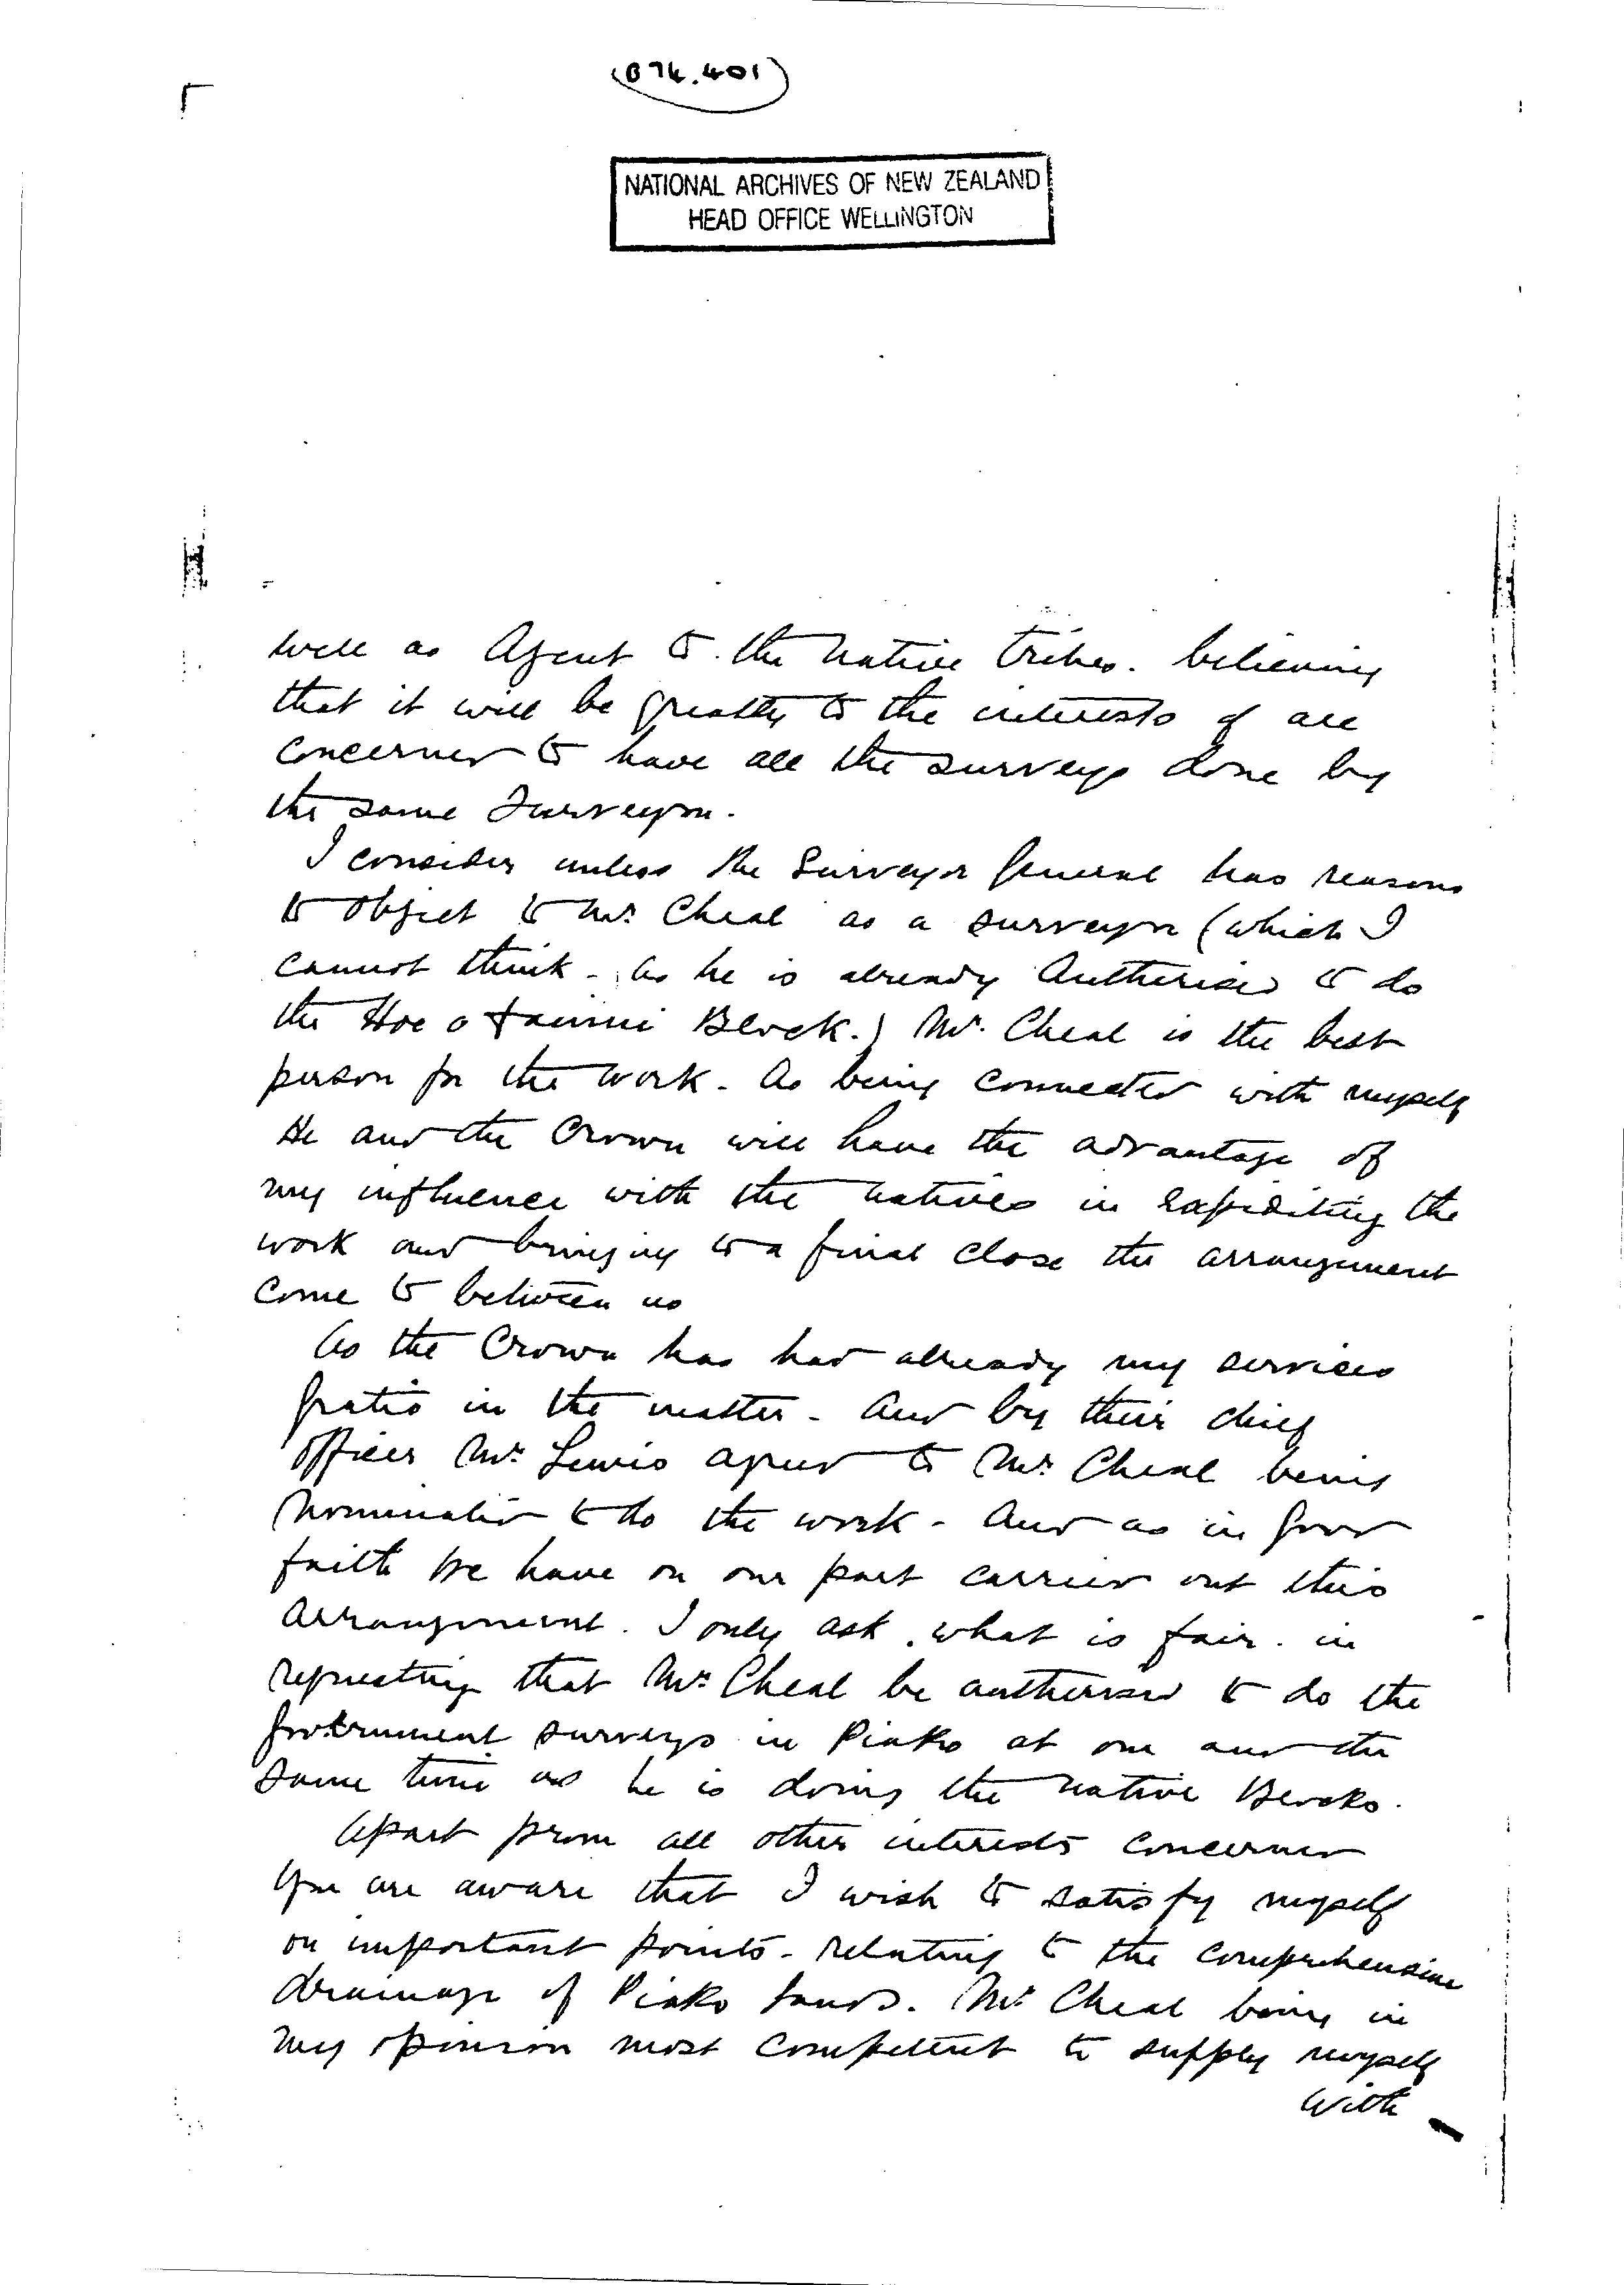 (B74.401)
NATIONAL ARCHIVES OF NEW ZEALAND
HEAD OFFICE WELLINGTON
well as Agent to the Native Tribes. believing
that it will be greatly to the interests of all
concerned to have all the surveys done by
the same Surveyor.
I consider unless the Surveyor General has reasons
to object to Mr. Cheal as a surveyor (which I
cannot think - as he is already Autherised to do
the Hoe o Tainui Block.) Mr. Cheal is the best
person for the work. As being connected with myself
He and the Crown will have the advantage of
my influence with the natives in expediting the
work and bringing to a final close the arrangement
come to between us
As the Crown has had already my services
gratis in the matter - and by their chief
officer Mr. Lewis agreed to Mr. Cheal being
nominated to do the work - and as in good
faith we have on our part carried out this
arrangement. I only ask what is fair. in
requesting that Mr. Cheal be autherised to do the
Government surveys in Piako at one and the
same time as he is doing the native Blocks.
Apart from all other interests concerned
you are aware that I wish to satisfy myself
on important points - relating to the comprehensive
drainage of Piako lands. Mr. Cheal being in
my opinion most competent to supply myself
with